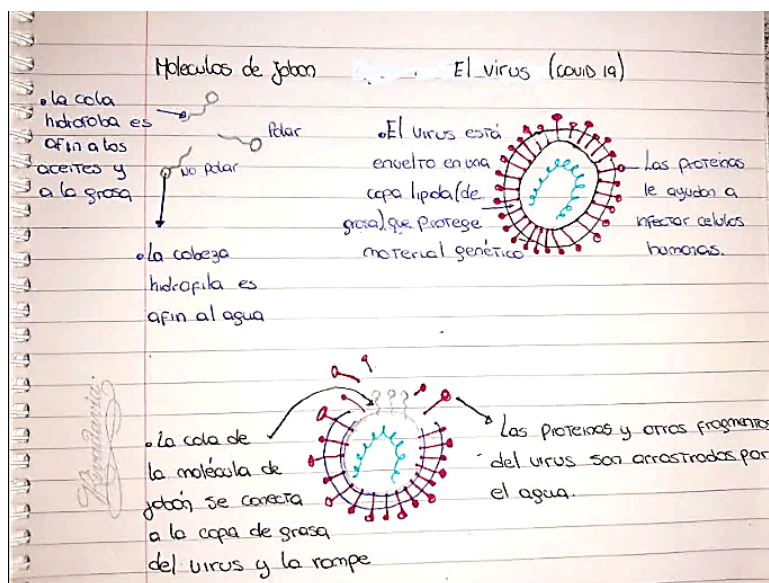 Moleculas de jabon
El virus (COVID 19)
• la cola
hidrofoba es
afin a los
aceites y
a la grasa
Polar
No Polar
• la cabeza
hidrofila es
afin al agua
• El virus está
envuelto en una
capa lipida (de
grasa) que protege
material genético
Las proteinas
le ayudan a
infectar celulas
humanas.
• la cola de
la molécula de
jabón se conecta
a la capa de grasa
del virus y la rompe
Las proteinas y otros fragmentos
del virus son arrastrados por
el agua.